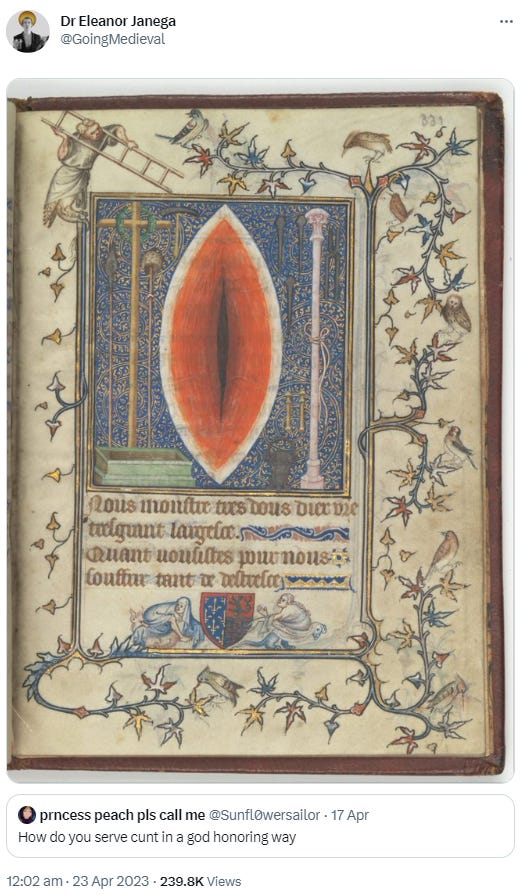 Dr Eleanor Janega
@GoingMedieval
331
Nous monstre tres dous diex vre
tresgrant largesce.
Quant vousistes pour nous
souffrir tant de destresce
prncess peach pls call me @Sunfl0wersailor · 17 Apr
How do you serve cunt in a god honoring way
12:02 am · 23 Apr 2023 · 239.8K Views